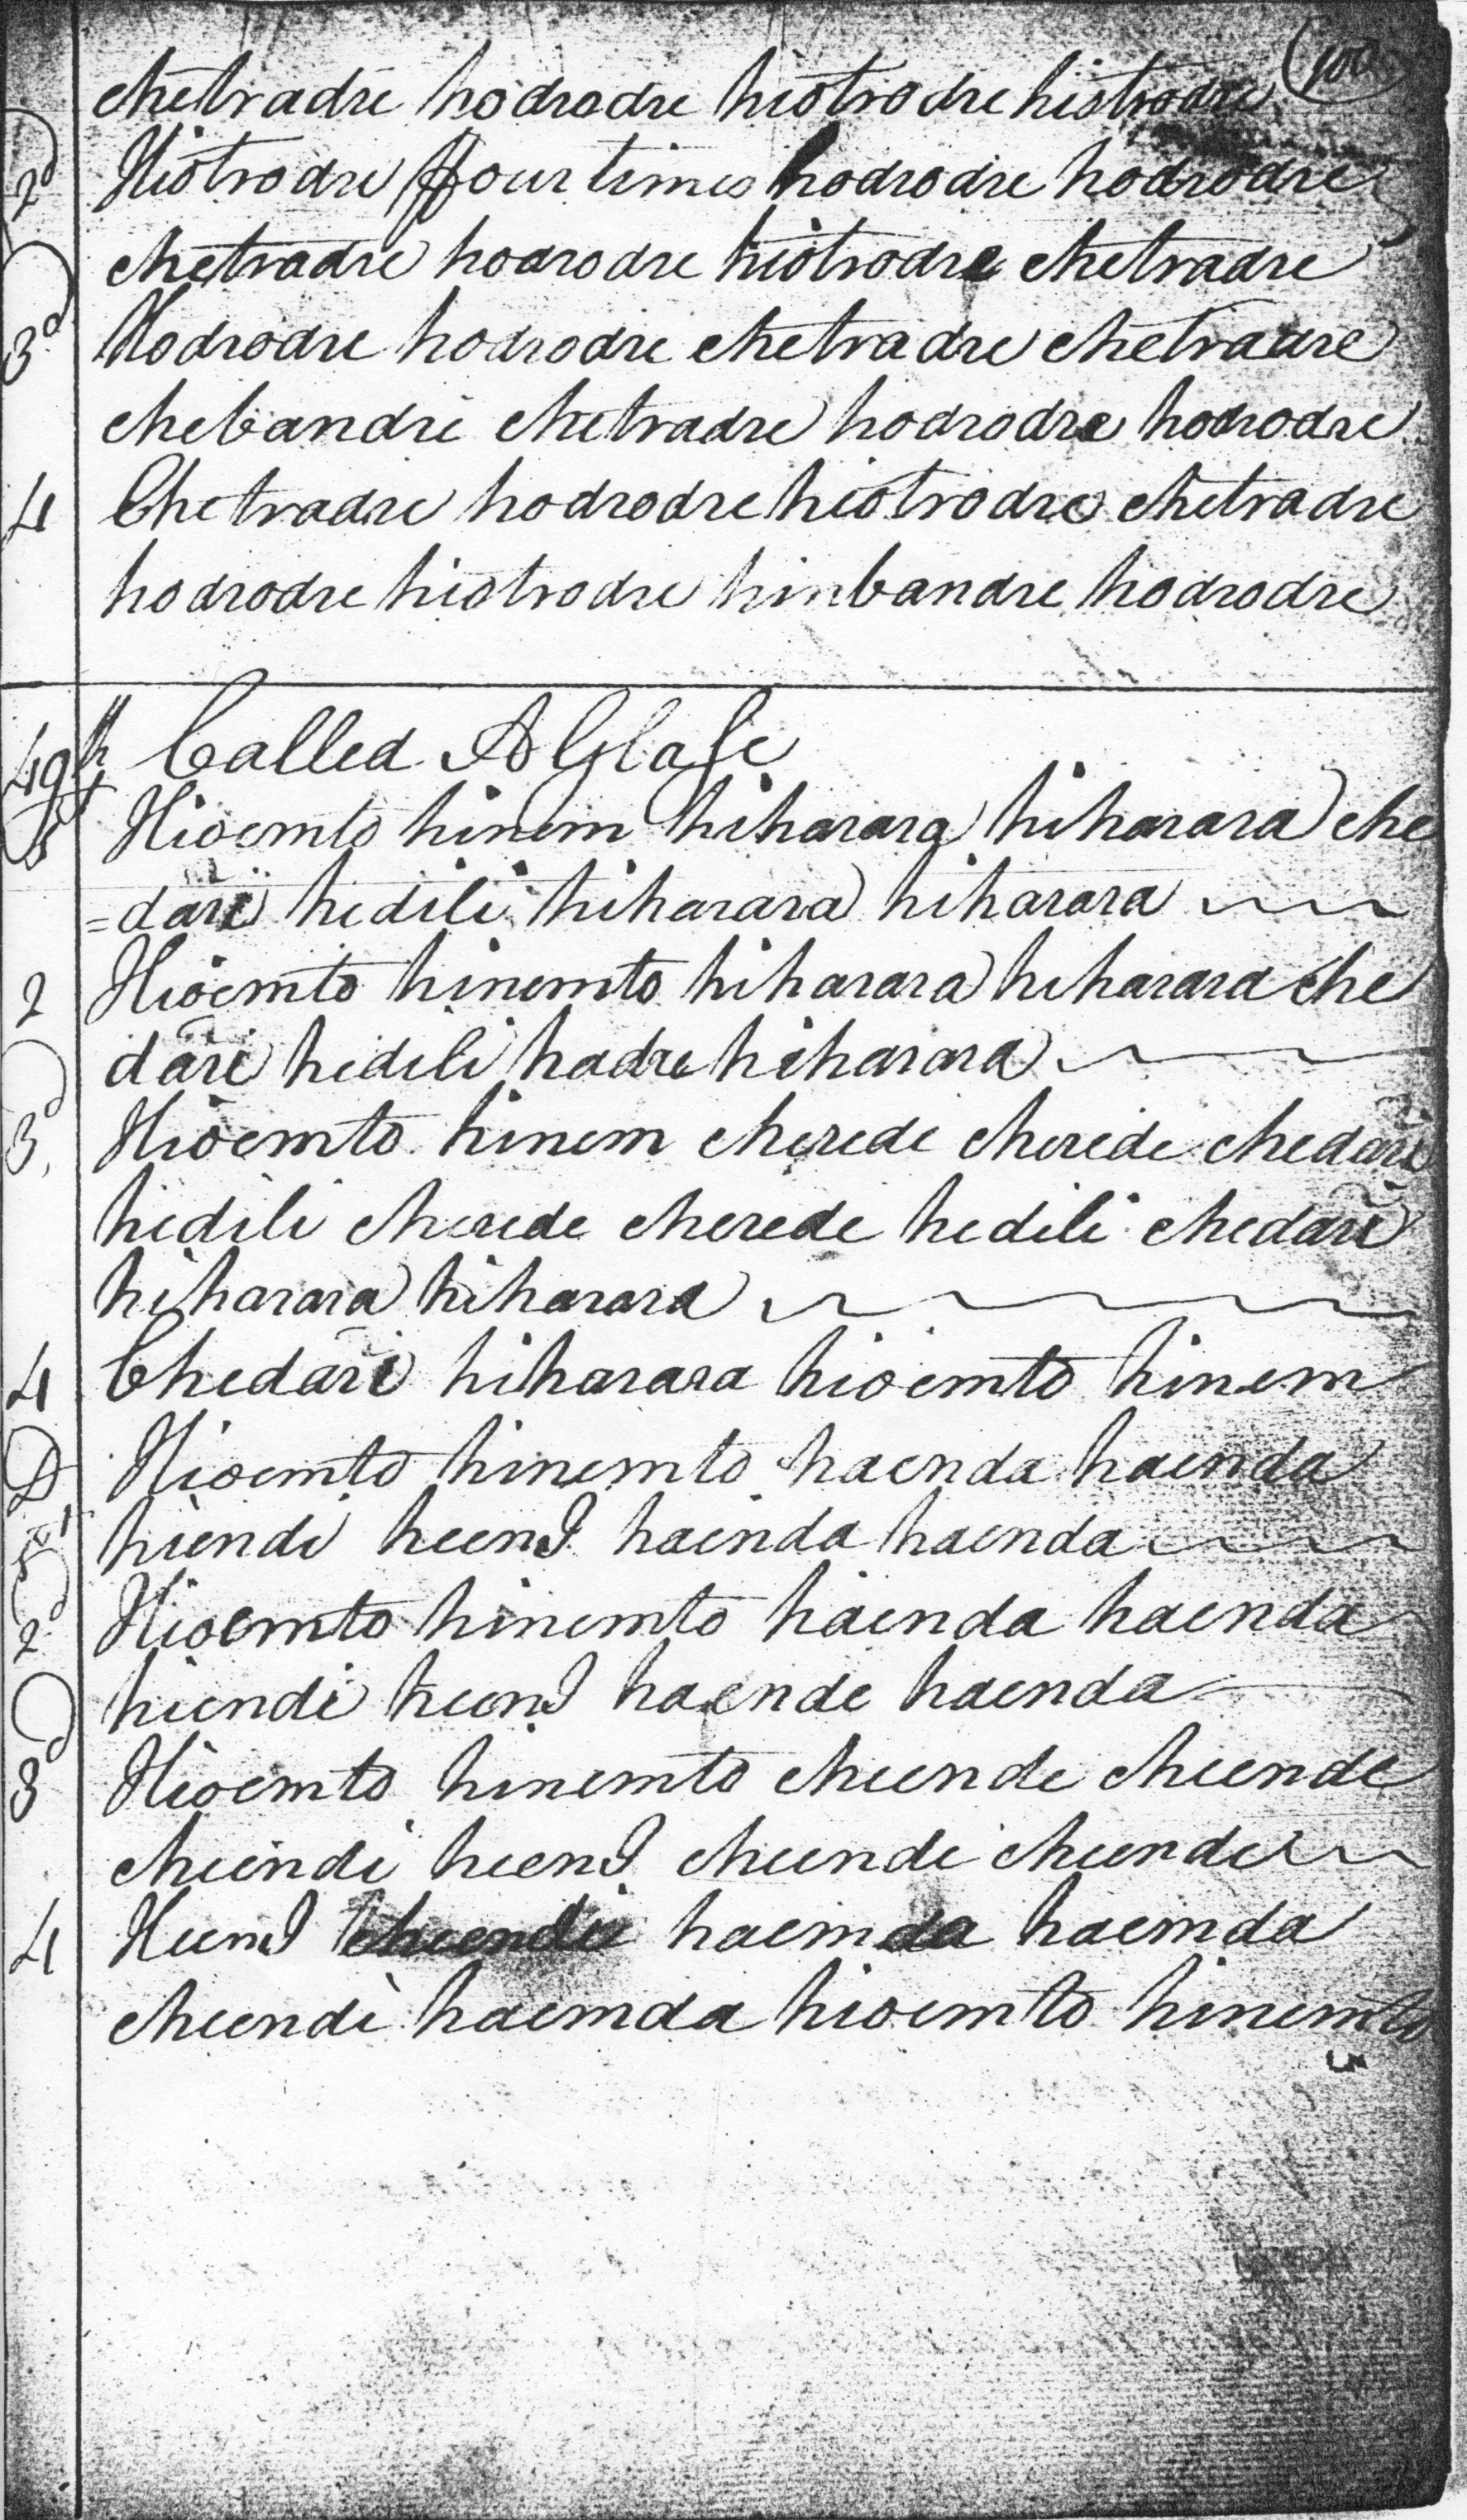 100
chetradre hodrodre hiotrodre hiotrodre
2d Hiotrodre ffour times hodrodre hodrodre
chetradre hodrodre hiotrodre chetradre
3d Hodrodre hodrodre chetradre chetradre
chebandre chetradre hodrodre hodrodre
4 Chetradre hodrodre hiotrodre chetradre
hodrodre hiotrodre hinbandre hodrodre
49th Called A Glase
Hioemto hinem hiharara hiharara che
=dari hedili hiharara hiharara
2 Hioemto hinemto hiharara hiharara che
dari hedili hadre hiharara
3d Hioemto hinem cherede cherede chedari
hedili cherede cherede hedili chedari
hiharara hiharara
4 Chedari hiharara hioemto hinem
D Hioemto hinemto haenda haenda
1st hiendi heend haenda haenda
2d Hioemto hinemto haenda haenda
hiendi heend haende haenda
3d Hioemto hinemto cheende cheende
cheendi heend cheende cheende
4 Heend cheende haemda haemda
cheende haemda hioemto hinemto